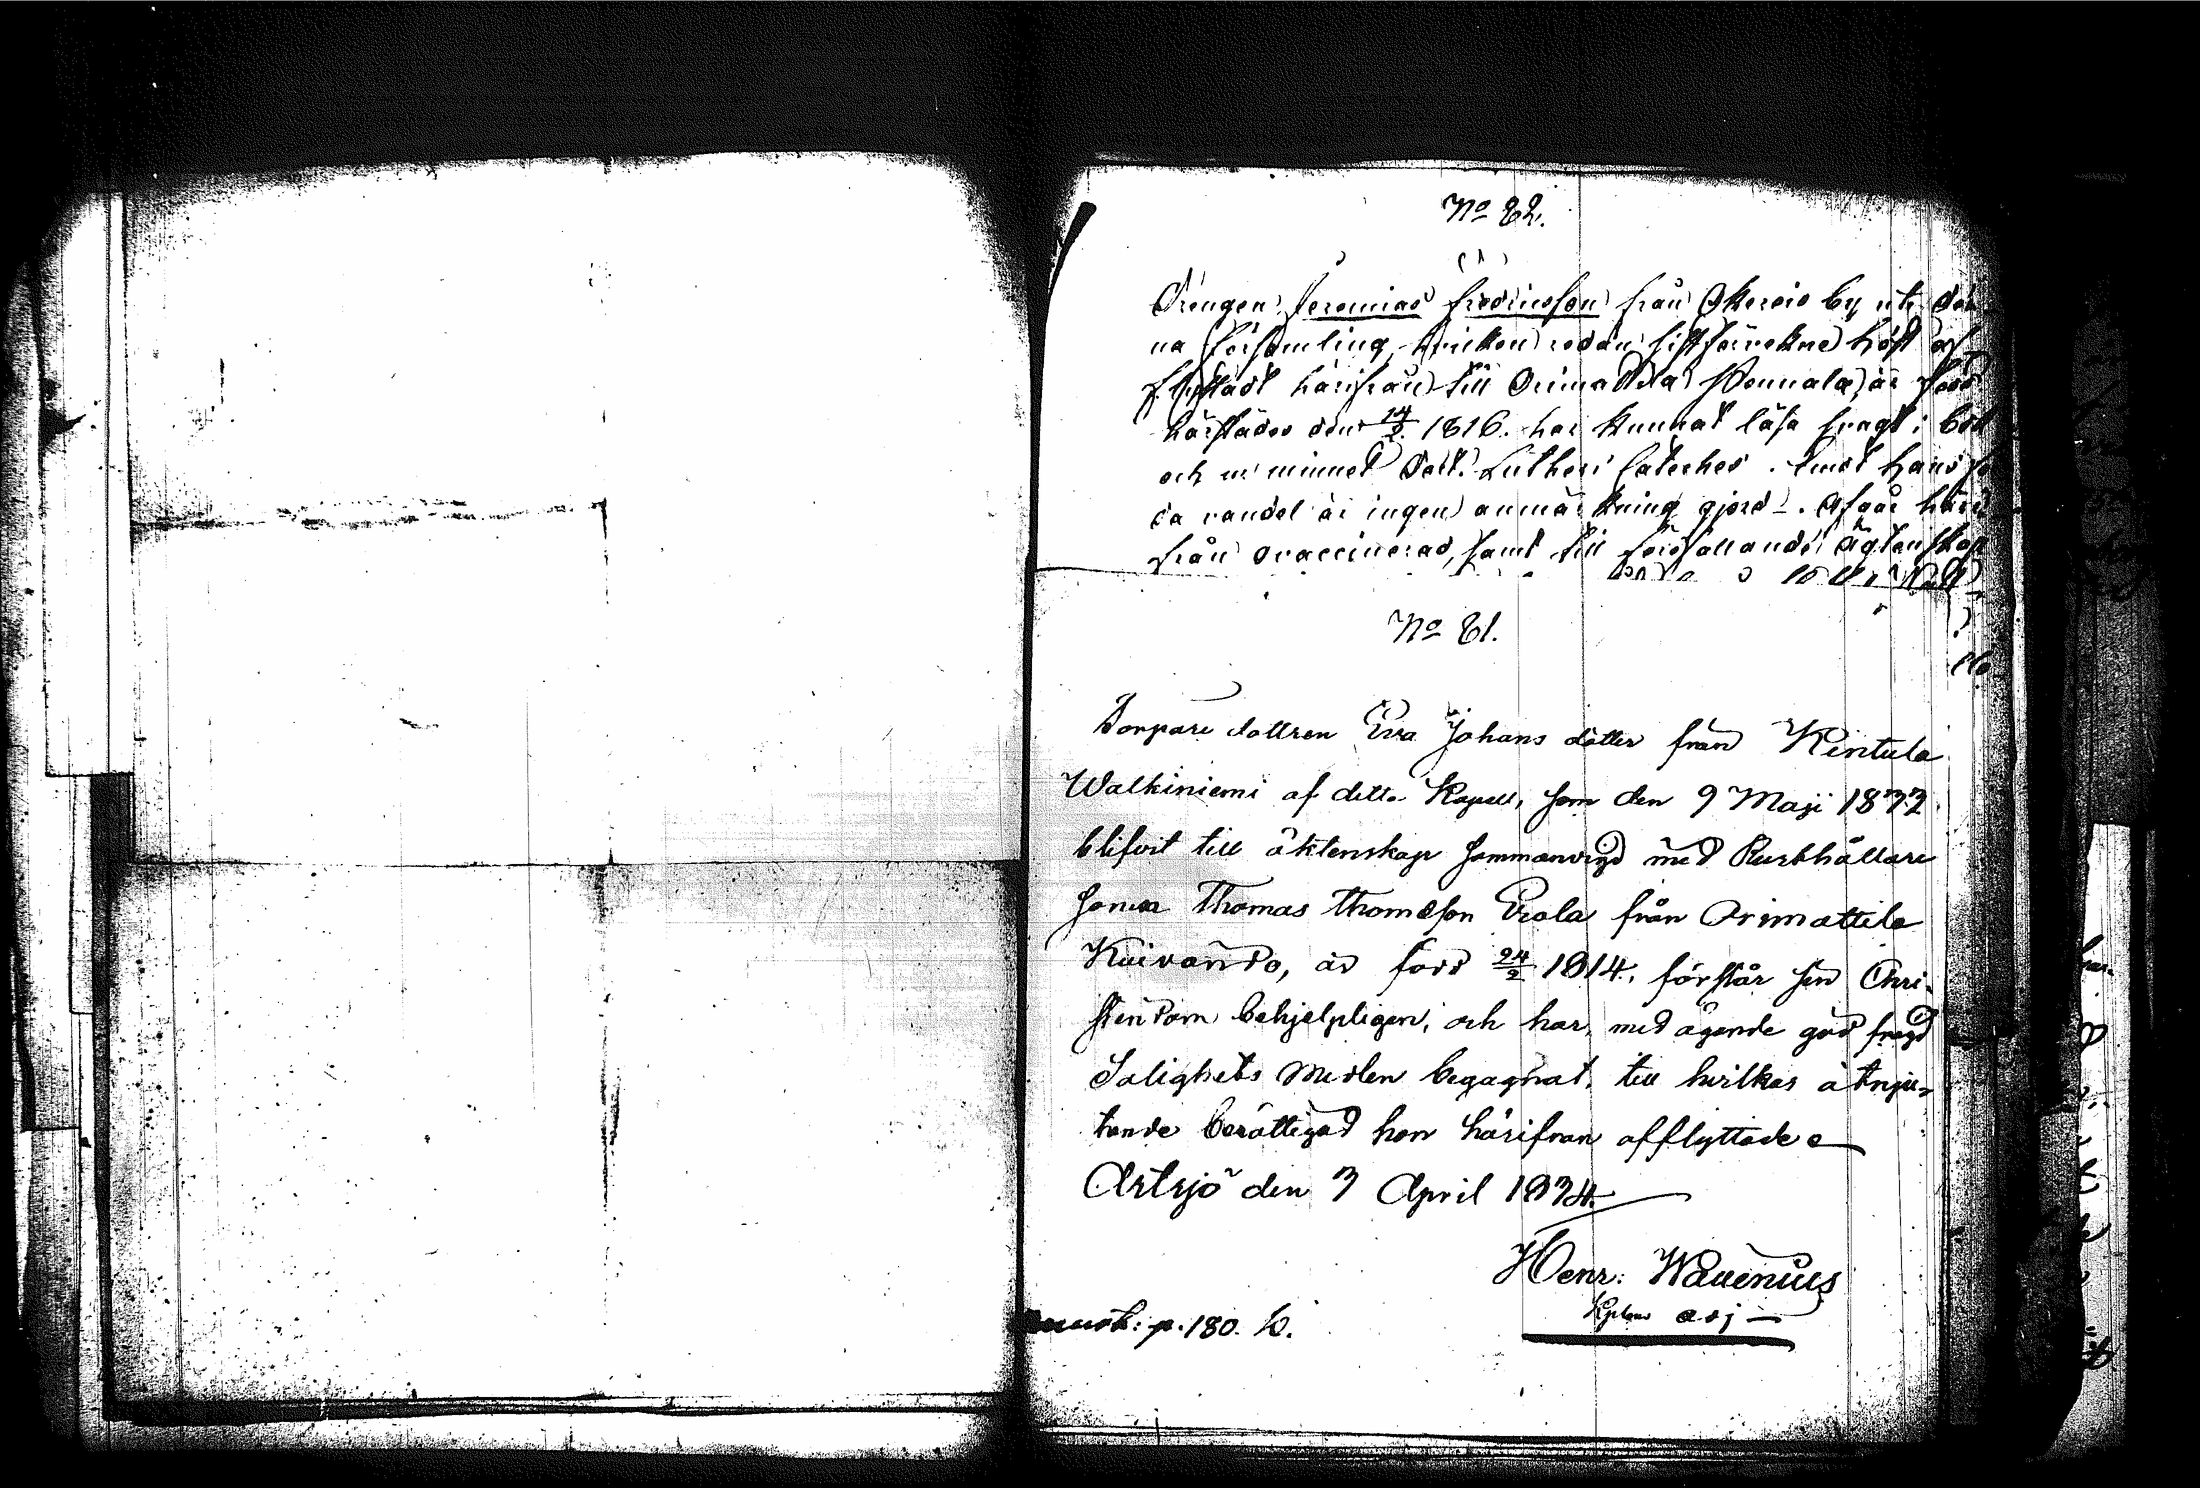 No 82.
Drengen Jeremias Fredricsson från Okerois by uti den
na Församling, hvilken redan sistförvekne höst af
flyttadt härifrån till Orimattila Wennala, är född
härstädes den 14/2. 1816. har kunnat läsa svagt i bok
och ur minnet Doct. Lutheri Cateches. Emot hans se
da vandel är ingen anmärkning gjord. Afgår häri
från ovaccinerad, samt till förefallande Ägtenskap
No 81.
Torpare dottren Eva Johans dotter från Kintula
Walkiniemi af detta Kapell, som den 9 Maji 1833
blifvit till äktenskap sammanvigd med Rusthållare
Sonen Thomas Thomasson Erola från Orimattila
Kuivando, är född 24/2 1814, förstår sin Chri-
stendom behjelpligen, och har, med ägande god fregd
Salighets Medlen begagnat, till hvilkas åtnju-
tande berättigad hon härifrån afflyttade
Artsjö den 3 April 1834.
Henr: Wauenius
Kplans adj
p. 180.